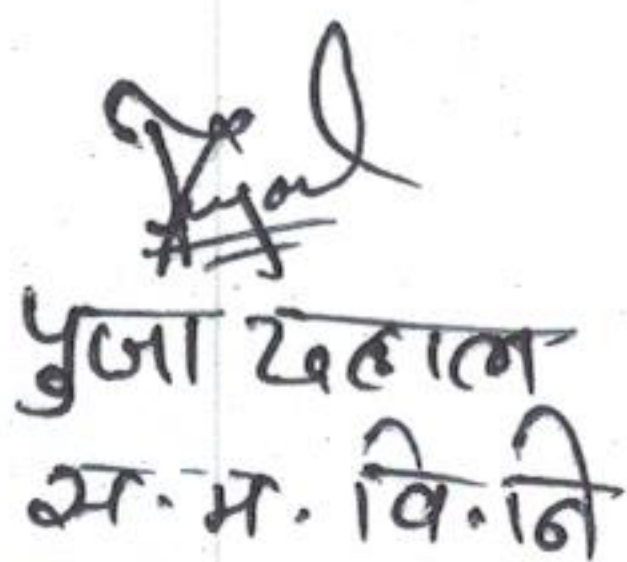 पुजा दहाल
स.म.वि.नि